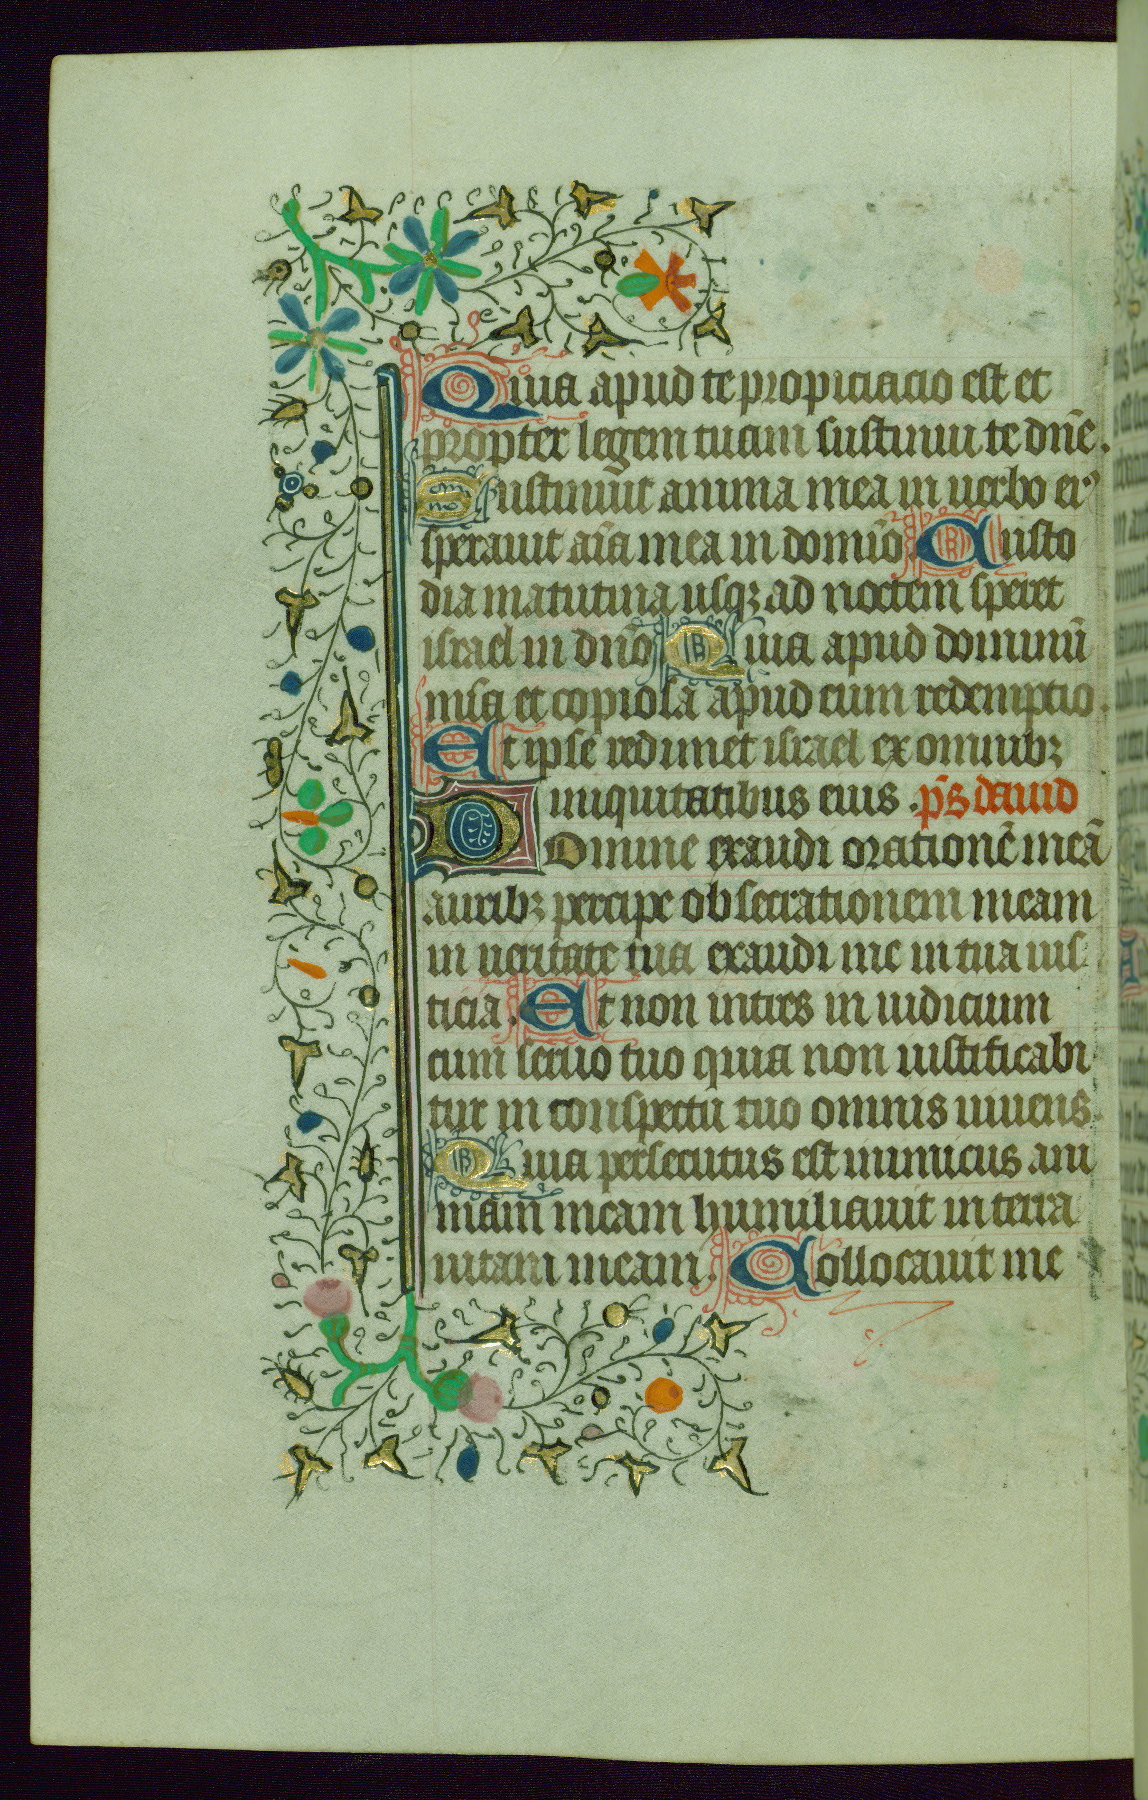 Quia apud te propiciacio est et
propter legem tuam sustinui te dñe.
Sustinuit anima mea in uerbo eiꝰ
sperauit aīa mea in domīo A custo
dia matutina usqꝫ ad noctem speret
israel in dño Quia apud dominū
mīa et copiosa apud eum redemptio.
Et ipse redimet israel ex omnibꝫ
iniquitatibus eius . p̄s dauid
Domine exaudi orationē meā
auribꝫ percipe obsecrationem meam
in ueritate tua exaudi me in tua ius
ticia . Et non intres in iudicium
cum seruo tuo quia non iustificabi
tur in conspectu tuo omnis uiuens
Quia persecutus est inimicus ani
mam meam humiliauit in terra
uitam meam . Collocauit me